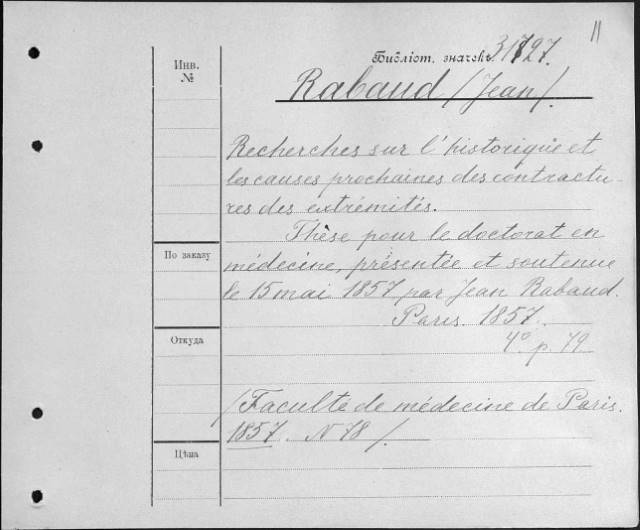 11
Библіот. значокъ 31727.
Инв.
№
Rabaud /Jean/.
Recherches sur l'historique et
les causes prochaines des contractu-
res des extrémités.
Thèse pour le doctorat en
По заказу
médecine, présentée et soutenue
le 15 mai 1857 par Jean Rabaud.
Paris 1857.
Откуда
4° p. 79
/Faculté de médecine de Paris.
1857. N 78/.
Цѣна